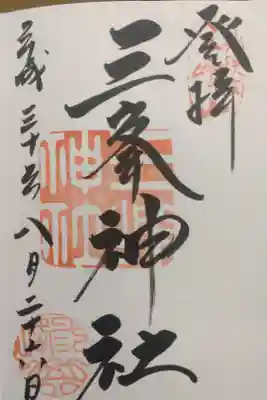 登拝
三峯神社
平成三十年八月二十八日